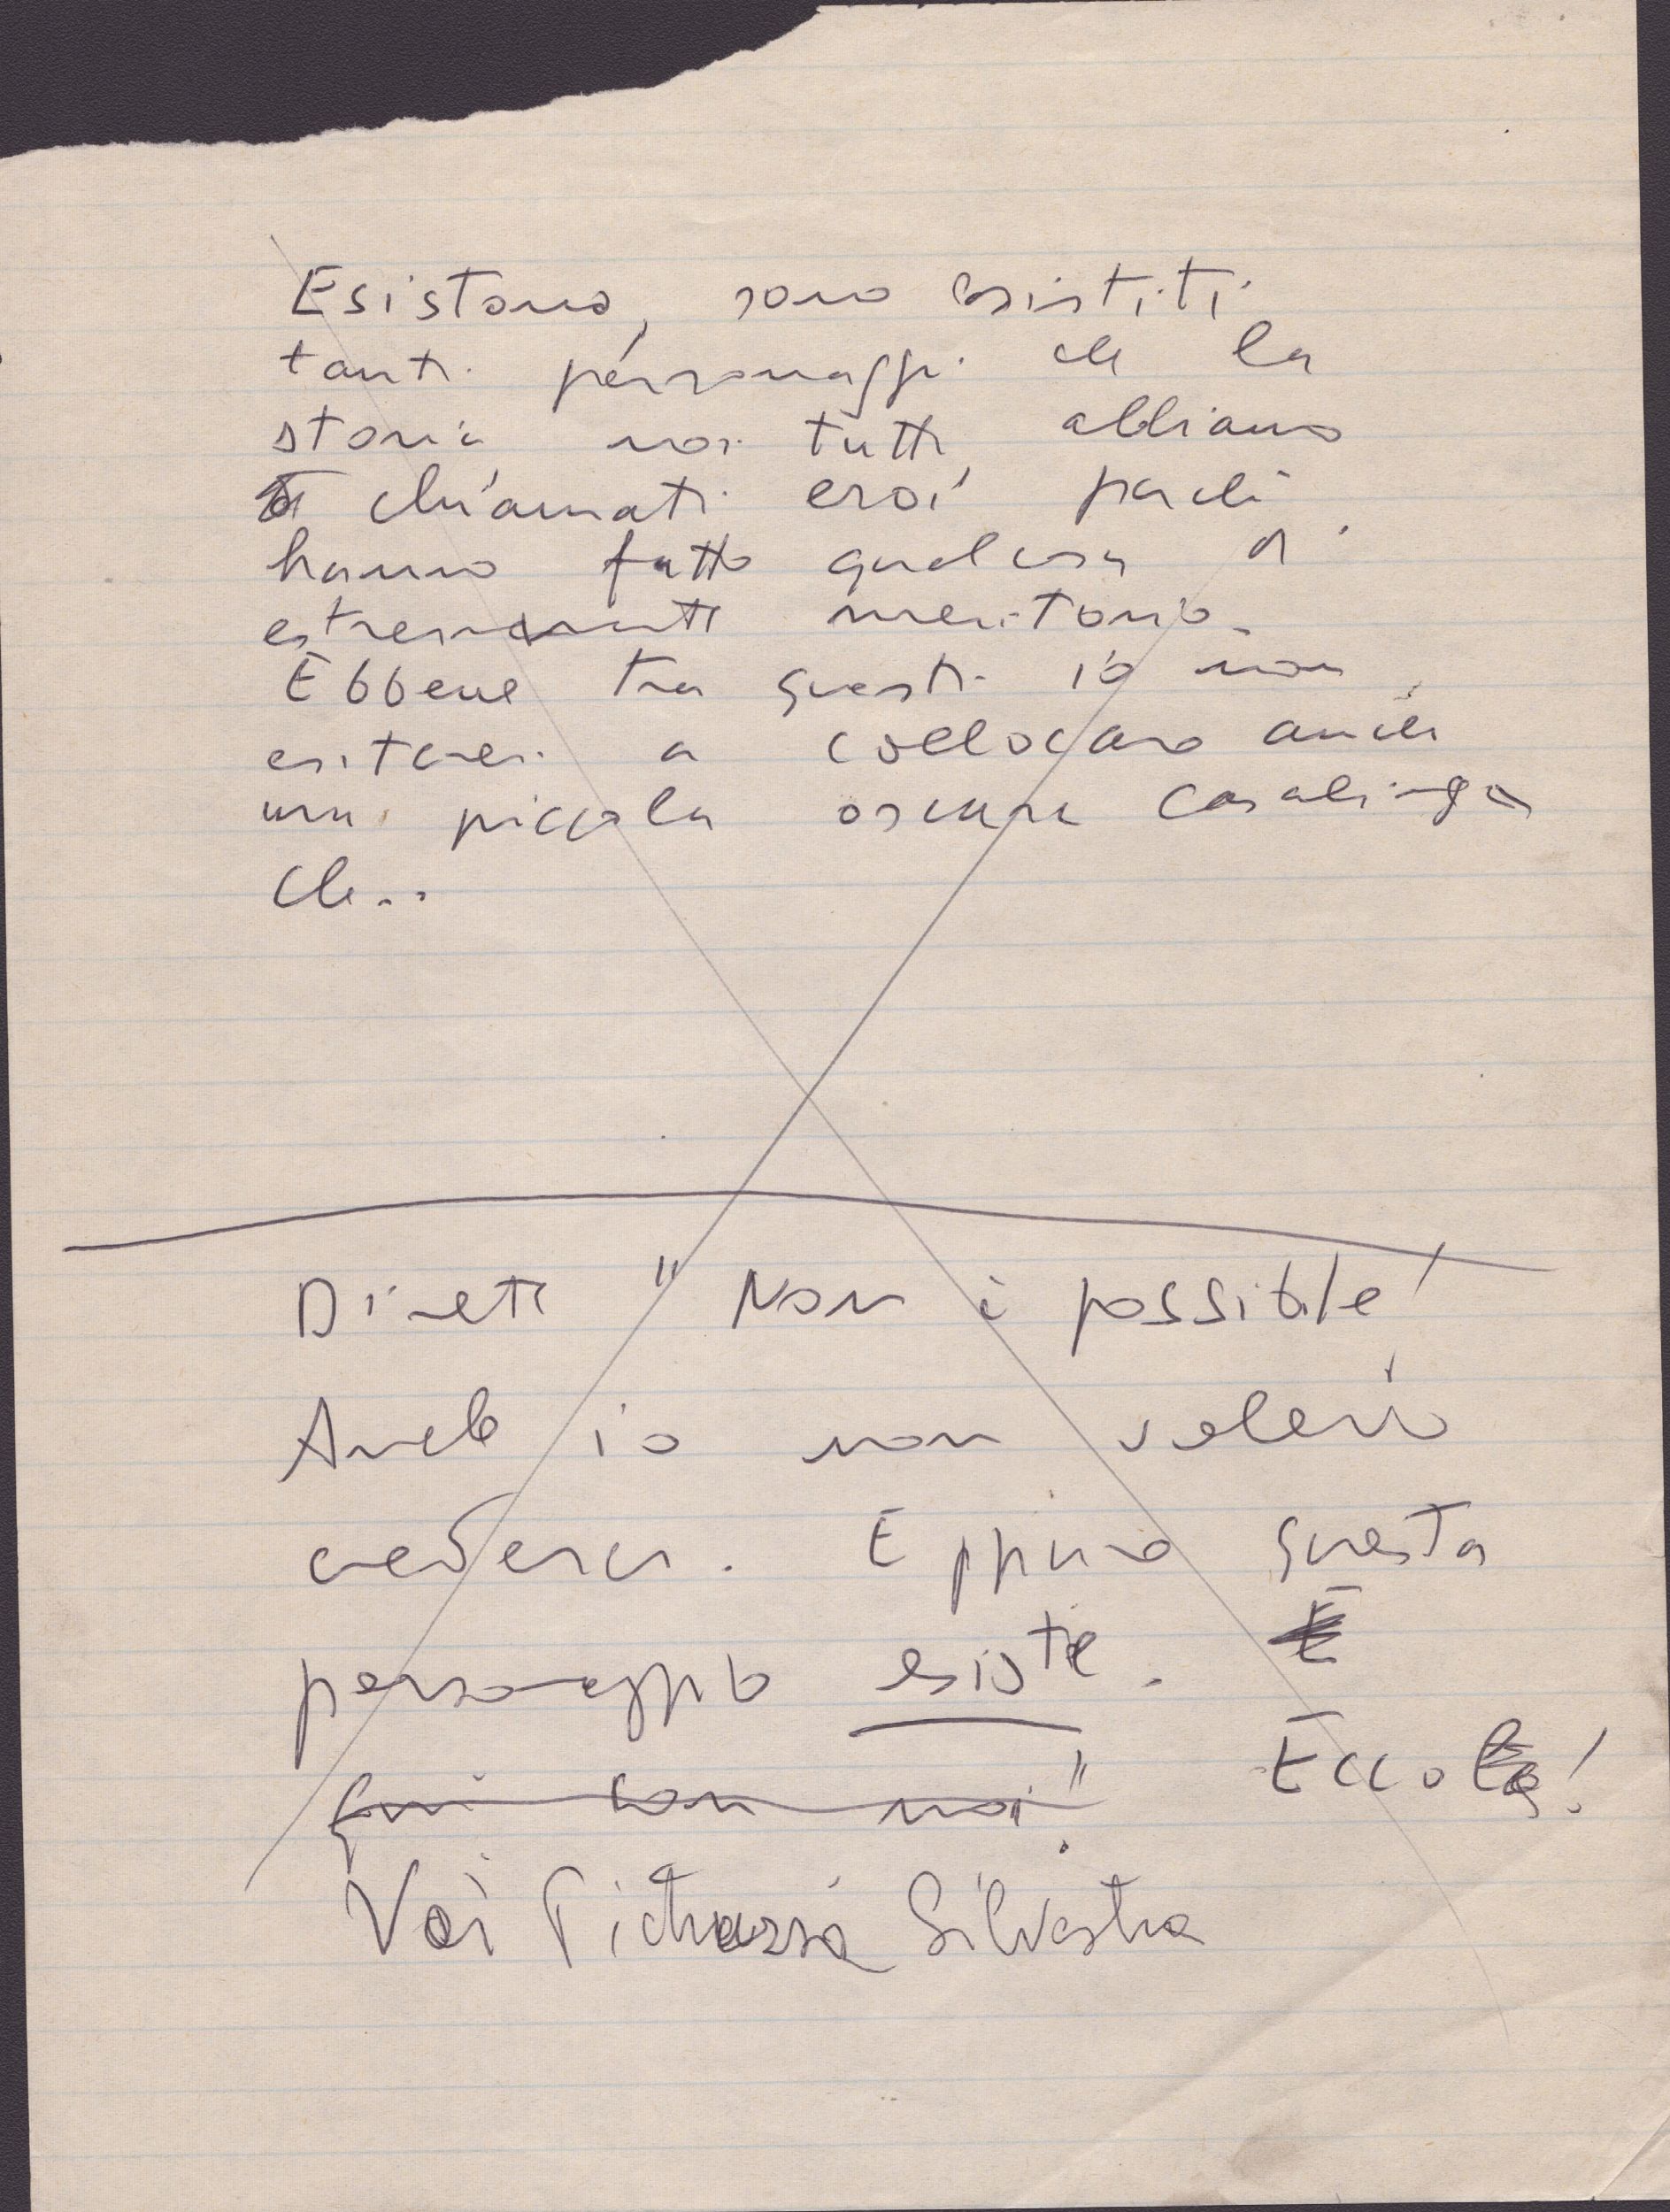 Esistono, sono esistiti
tanti personaggi che la
storia noi tutti abbiamo
chiamati eroi perché
hanno fatto qualcosa di
estremamente meritorio.
Ebbene tra questi io non
esiterei a collocare anche
una piccola oscura casalinga
che..
Direte "Non è possibile!
Anch'io non volevo
crederci. Eppure questo
personaggio esiste.
Eccola!
qui con noi"
Voi Silvestra